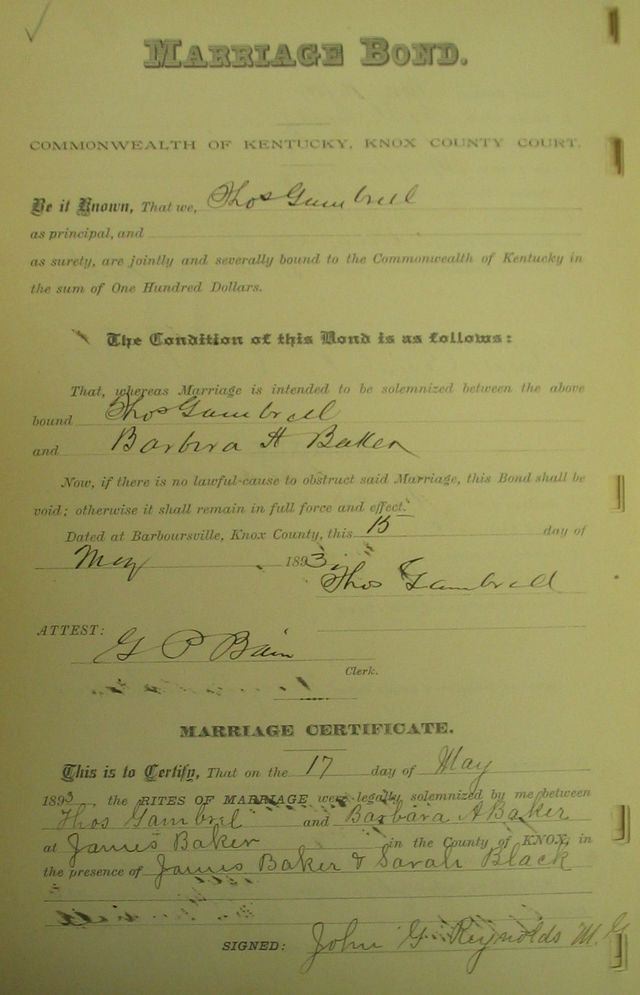 MARRIAGE BOND.
COMMONWEALTH OF KENTUCKY, KNOX COUNTY COURT.
Be it Known, That we, Thos Gambrell
as principal, and
as surety, are jointly and severally bound to the Commonwealth of Kentucky in
the sum of One Hundred Dollars.
The Condition of this Bond is as follows:
That, whereas Marriage is intended to be solemnized between the above
bound Thos Gambrell
and Barbra A Baker
Now, if there is no lawful cause to obstruct said Marriage, this Bond shall be
void; otherwise it shall remain in full force and effect.
Dated at Barboursville, Knox County, this 15 day of
May 1893
Thos Gambrell
ATTEST:
G P Bain
Clerk.
MARRIAGE CERTIFICATE.
This is to Certify, That on the 17 day of May
1893, the RITES OF MARRIAGE were legally solemnized by me between
Thos Gambrel and Barbara A Baker
at James Baker in the County of KNOX, in
the presence of James Baker & Sarah Black
SIGNED: John G Reynolds M. G